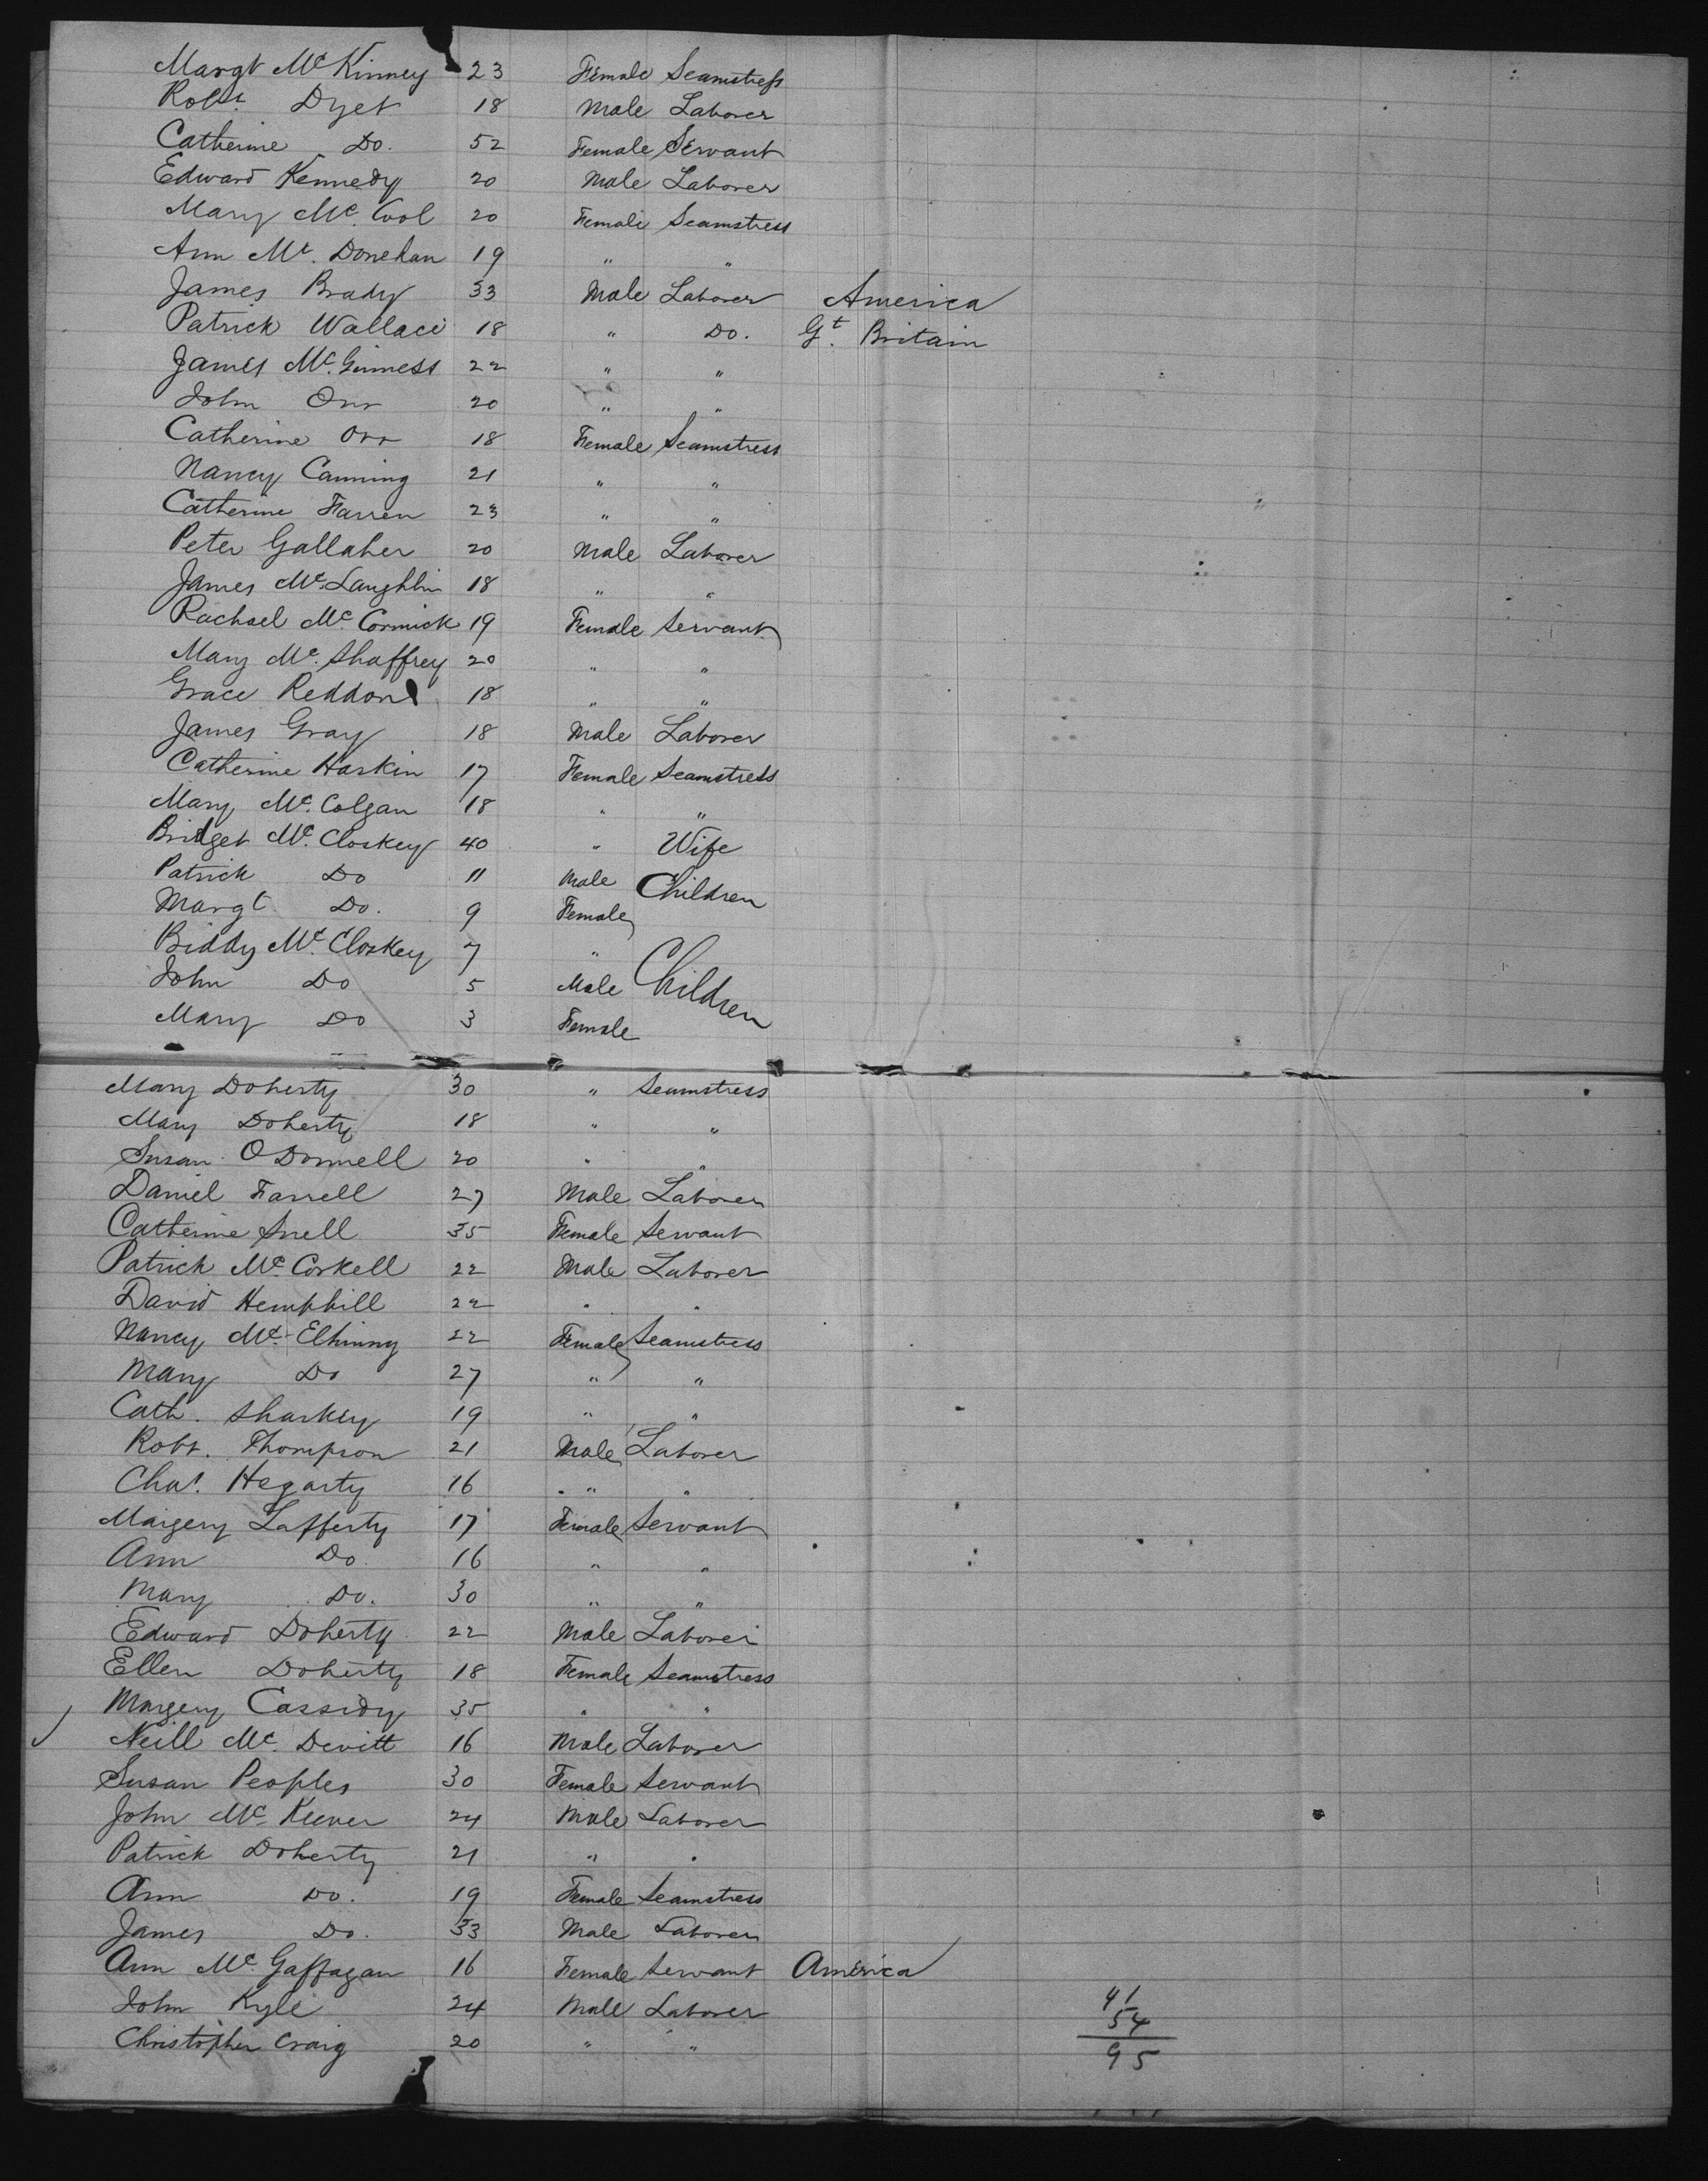 Margt McKinney 23 Female Seamstress
Robt. Dyet 18 Male Laborer
Catherine Do. 52 Female Servant
Edward Kennedy 20 Male Laborer
Mary Mc. Cool 20 Female Seamstress
Ann Mc. Donehan 19 " "
James Brady 33 Male Laborer America
Patrick Wallace 18 " Do. Gt. Britain
James Mc. Ginness 22 " "
John Orr 20 " "
Catherine Orr 18 Female Seamstress
Nancy Canning 21 " "
Catherine Farren 23 " "
Peter Gallaher 20 Male Laborer
James Mc. Laughlin 18 " "
Rachael Mc. Cormick 19 Female Servant
Mary Mc. Shaffrey 20 " "
Grace Reddon 18 " "
James Gray 18 Male Laborer
Catherine Harkin 17 Female Seamstress
Mary Mc. Colgan 18 " "
Bridget Mc. Closkey 40 " Wife
Patrick Do 11 Male Children
Margt Do. 9 Female
Biddy Mc. Closkey 7 "
John Do 5 Male Children
Mary Do 3 Female
Mary Doherty 30 " Seamstress
Mary Doherty 18 " "
Susan O Donnell 20 " "
Daniel Farrell 27 Male Laborer
Catherine Snell 35 Female Servant
Patrick Mc. Corkell 22 Male Laborer
David Hemphill 22 " "
Nancy Mc. Elhinny 22 Female Seamstress
Mary Do 27 " "
Cath. Sharkey 19 " "
Robt. Thompson 21 Male Laborer
Chas. Hegarty 16 " "
Margery Lafferty 17 Female Servant
Ann Do. 16 " "
Mary Do. 30 " "
Edward Doherty 22 Male Laborer
Ellen Doherty 18 Female Seamstress
Margery Cassidy 35 " "
Neill Mc. Devitt 16 Male Laborer
Susan Peoples 30 Female Servant
John Mc. Keever 24 Male Laborer
Patrick Doherty 21 " "
Ann Do. 19 Female Seamstress
James Do. 33 Male Laborer
Ann Mc. Gaffagan 16 Female Servant America
John Kyle 24 Male Laborer
Christopher Craig 20 " "
41
54
95